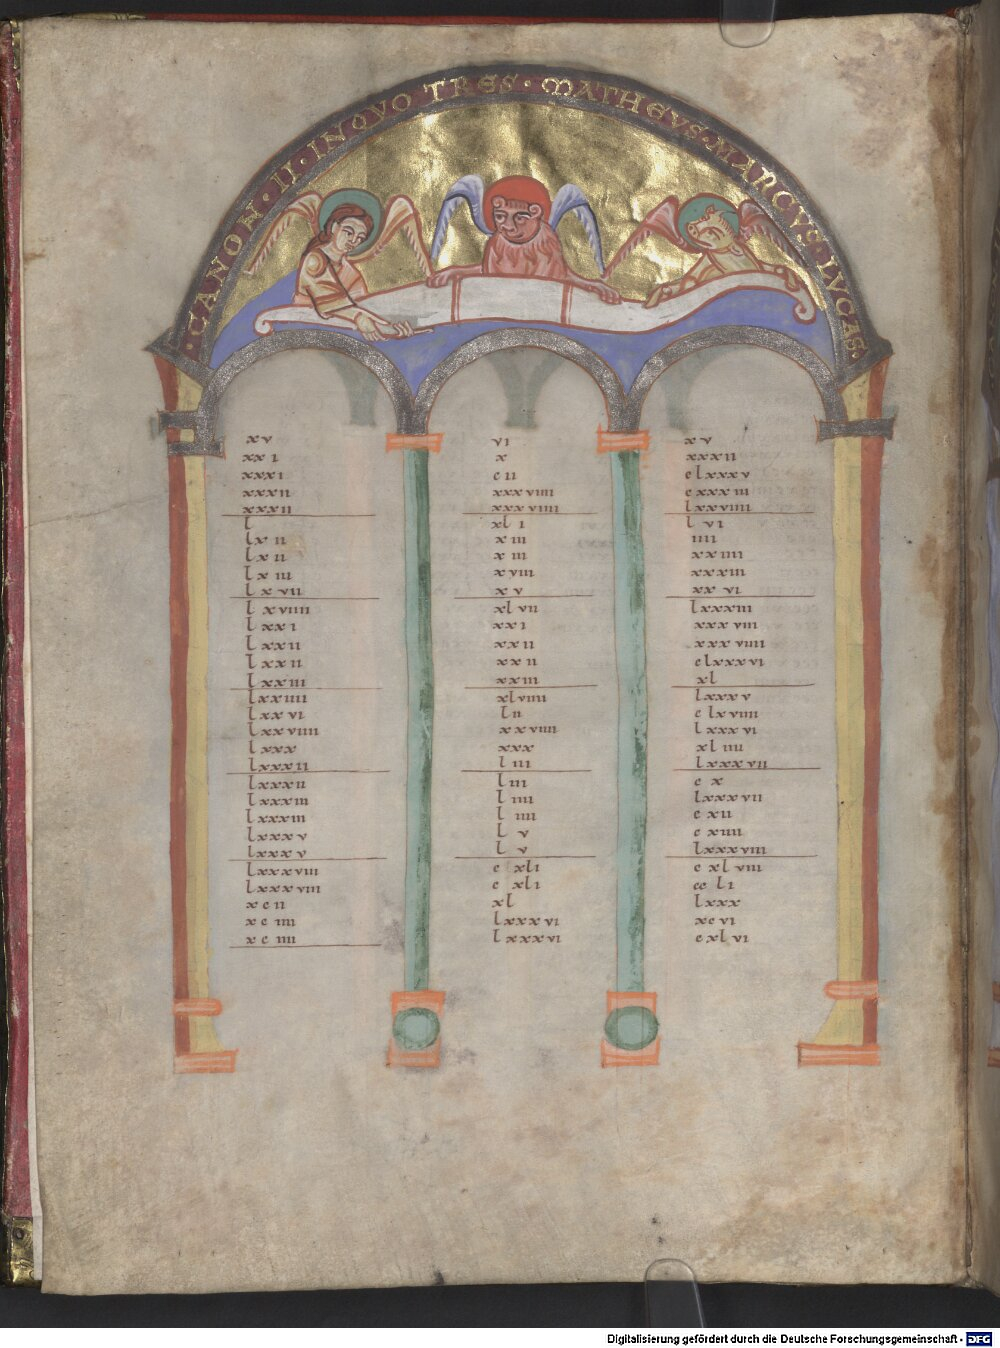 ·CANON·II·INQVO TRES·MATHEVS·MARCVS·LVCAS·
xv
xxi
xxxi
xxxii
xxxii
l
lxii
lxii
lxiii
lxvii
lxviiii
lxxi
lxxii
lxxii
lxxiii
lxxiiii
lxxvi
lxxviiii
lxxx
lxxxii
lxxxii
lxxxiii
lxxxiii
lxxxv
lxxxv
lxxxviii
lxxxviii
xcii
xciiii
xciiii
vi
x
cii
xxxviiii
xxxviiii
xli
xiii
xiii
xviii
xv
xlvii
xxi
xxii
xxii
xxiii
xlviiii
lii
xxviiii
xxx
liii
liii
liiii
liiii
lv
lv
cxli
cxli
xl
lxxxvi
lxxxvi
xv
xxxii
clxxxv
cxxxiii
lxxviiii
lvi
iiii
xxiiii
xxxiii
xxvi
lxxxiii
xxxviii
xxxviiii
clxxxvi
xl
lxxxv
clxviiii
lxxxvi
xliiii
lxxxvii
cx
lxxxvii
cxii
cxiiii
lxxxviii
cxlviii
ccli
lxxx
xcvi
cxlvi
Digitalisierung gefördert durch die Deutsche Forschungsgemeinschaft - DFG